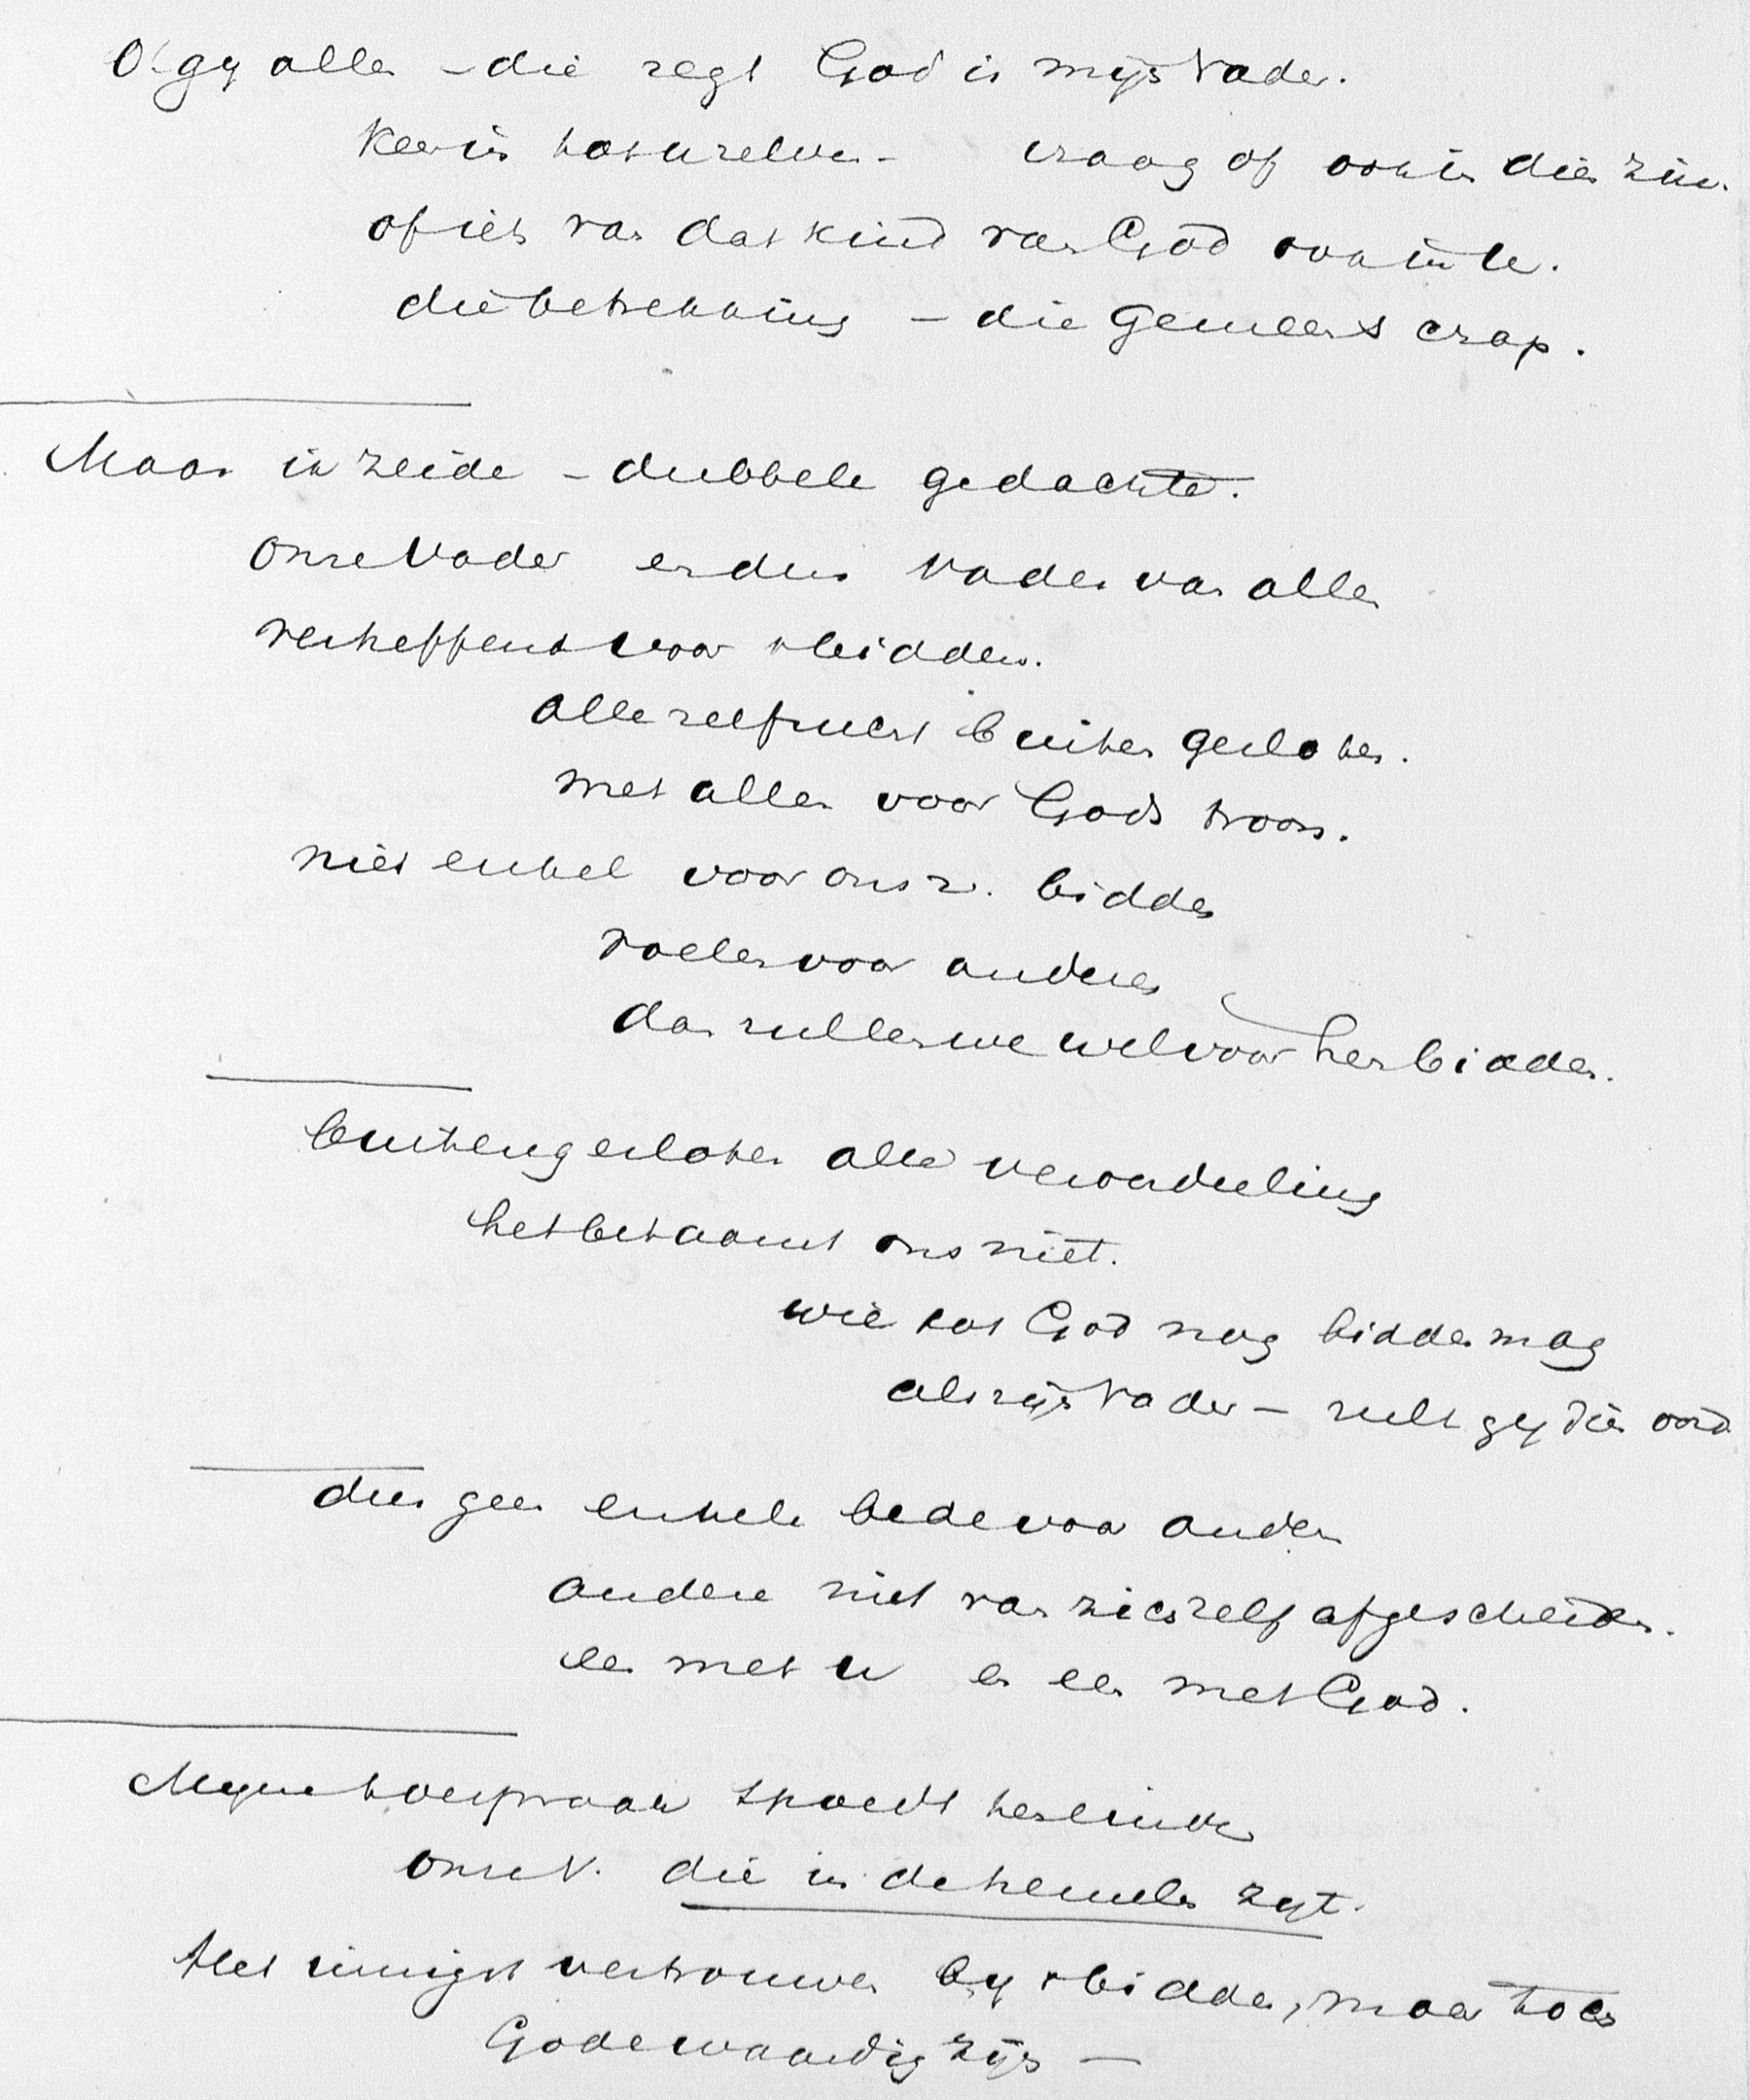 O! gy allen – die zegt God is mijn Vader.
Keer in tot u zelven – vraag of ook in dien zin.
of iets van dat kind van God ook in u le.
die betrekking – die gemeenschap.
Maar ik zeide – dubbele gedachte.
Onze Vader en dus vader van allen
verheffend voor 't bidden.
alle zelfzucht buiten gesloten.
met allen voor Gods troon.
niet enkel voor ons z. bidden
voelen voor anderen
dan zullen we wel voor hen bidden.
buitengesloten alle veroordeeling
het betaamt ons niet.
wie tot God nog bidden mag
als zijn Vader – zult gy dien oord
dus geen enkele bede voor anderen
andere niet van zich zelf afgescheiden.
een met u en een met God.
Myne toespraak spoedt ten einde
onze V. die in de hemelen zyt.
Het innigst vertrouwen by 't bidden, maar toch
Gode waardig zijn —